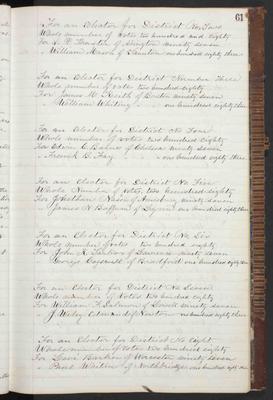 61
For an Elector for District No Two
Whole number of votes two hundred and Eighty
For ninety seven
William Mason of Taunton one hundred eighty three
For an Elector for District Number Three
Whole number of votes two hundred eighty
For James H. of Boston ninety seven
William Whiting " one hundred eighty three
For an Elector for District No Four
Whole number of votes two hundred eighty
For Edwin of Chelsea ninety seven
Francis B. Fay one hundred eighty three
For an Elector for District No Five
Whole Number of votes two hundred eighty
For Jonathan Nason of Amesbury ninety seven
James N. Buffum of Lynn one hundred eighty three
For an Elector for District No Six
Whole number of votes two hundred eighty
For John K. Tarbox of Lawrence ninety seven
George Cogswell of Bradford one hundred eighty three
For an Elector for District No Seven
Whole number of votes two hundred eighty
For William of Lowell ninety seven
J. Wiley Edmands of Newton one hundred eighty three
For an Elector for District No Eight
Whole number of votes two hundred eighty
For Levi Barker of Worcester ninety seven
Paul Whitin of Northbridge one hundred eighty three